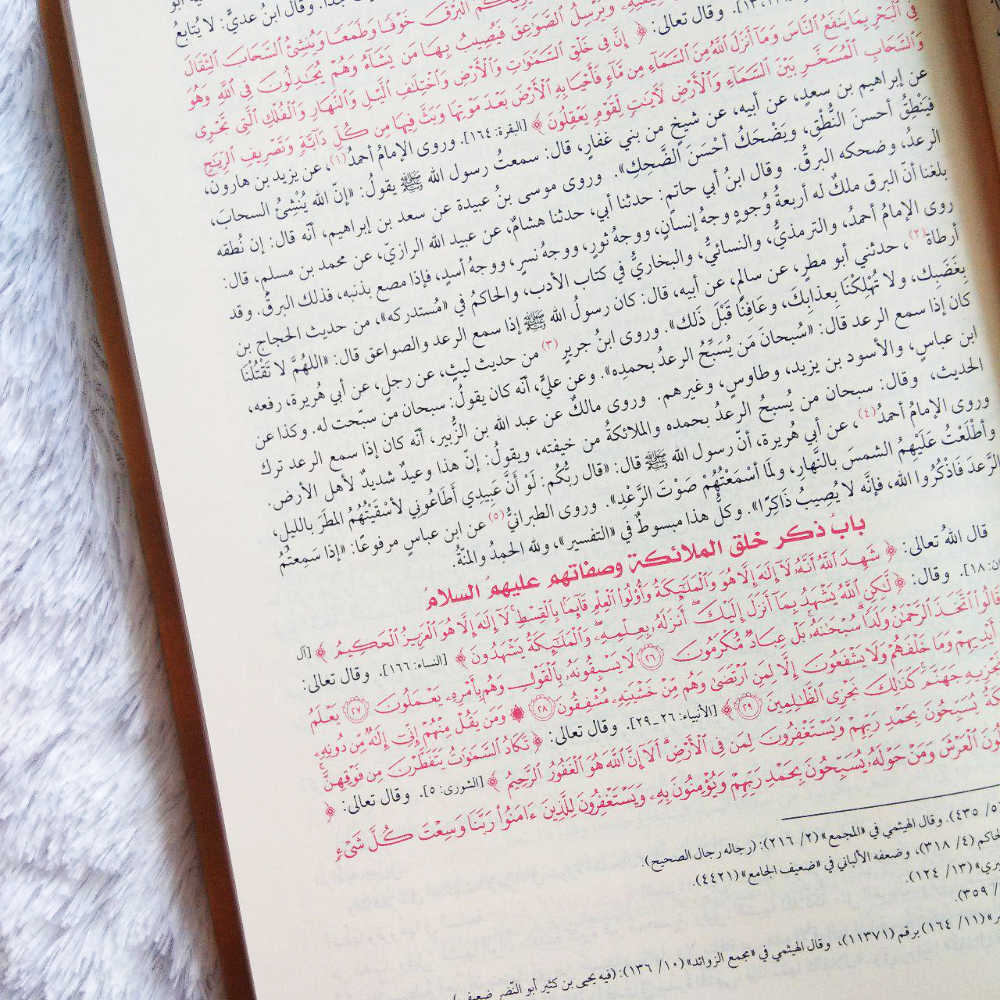 جدًّا. وقال ابنُ عديٍّ: لا يُتابَعُ
وقال تعالى: ﴿
ٱلْبَرْقَ خَوْفًا وَطَمَعًا وَيُنشِئُ ٱلسَّحَابَ ٱلثِّقَالَ
وَيُرْسِلُ ٱلصَّوَٰعِقَ فَيُصِيبُ بِهَا مَن يَشَآءُ وَهُمْ يُجَـٰدِلُونَ فِى ٱللَّهِ وَهُوَ
إِنَّ فِى خَلْقِ ٱلسَّمَـٰوَٰتِ وَٱلْأَرْضِ وَٱخْتِلَـٰفِ ٱلَّيْلِ وَٱلنَّهَارِ وَٱلْفُلْكِ ٱلَّتِى تَجْرِى
فِى ٱلْبَحْرِ بِمَا يَنفَعُ ٱلنَّاسَ وَمَآ أَنزَلَ ٱللَّهُ مِنَ ٱلسَّمَآءِ مِن مَّآءٍ فَأَحْيَا بِهِ ٱلْأَرْضَ بَعْدَ مَوْتِهَا وَبَثَّ فِيهَا مِن كُلِّ دَآبَّةٍ وَتَصْرِيفِ ٱلرِّيَـٰحِ
وَٱلسَّحَابِ ٱلْمُسَخَّرِ بَيْنَ ٱلسَّمَآءِ وَٱلْأَرْضِ لَـَٔايَـٰتٍ لِّقَوْمٍ يَعْقِلُونَ﴾ [البقرة: ١٦٤]. وروى الإمامُ أحمدُ(١)، عن يزيد بن هارون،
عن إبراهيم بن سعدٍ، عن أبيه، عن شيخٍ من بني غفارٍ، قال: سمعتُ رسول الله ﷺ يقولُ: «إنَّ الله يُنْشِئُ السحابَ،
فيَنْطِقُ أحسنَ النُّطْقِ، ويَضْحَكُ أحْسَنَ الضَّحِكِ». وروى موسى بنُ عبيدة عن سعد بن إبراهيم، أنّه قال: إن نُطقه
الرعدُ، وضحكه البرقُ. وقال ابنُ أبي حاتمٍ: حدثنا أبي، حدثنا هشامٌ، عن عبيد الله الرازيّ، عن محمد بن مسلمٍ، قال:
بلغنا أنّ البرق ملكٌ له أربعةُ وُجوهٍ وجهُ إنسانٍ، ووجهُ ثورٍ، ووجهُ نسرٍ، ووجهُ أسدٍ، فإذا مصع بذنبه، فذلك البرقُ. وقد
روى الإمامُ أحمدُ، والترمذيُّ، والنسائيُّ، والبخاريُّ في كتاب الأدب، والحاكمُ في «مُستدركه»، من حديث الحجاج بن
أرطاة(٢)، حدثني أبو مطرٍ، عن سالمٍ، عن أبيه، قال: كان رسولُ الله ﷺ إذا سمع الرعد والصواعق قال: «اللهُمَّ لا تَقْتُلْنَا
بِغَضَبِك، ولا تُهْلِكْنَا بعذابِكَ، وعَافِنَا قَبْلَ ذَلك». وروى ابنُ جريرٍ(٣) من حديث ليثٍ، عن رجلٍ، عن أبي هُريرة، رفعه،
كان إذا سمع الرعد قال: «سُبحانَ مَن يُسَبِّحُ الرعدُ بحمدِه». وعن عليٍّ، أنّه كان يقولُ: سبحان من سبّحت له. وكذا عن
ابن عباسٍ، والأسود بن يزيد، وطاوسٍ، وغيرهم. وروى مالكٌ عن عبد الله بن الزُّبير، أنّه كان إذا سمع الرعد ترك
الحديث، وقال: سبحان من يُسبحُ الرعدُ بحمده والملائكةُ من خيفته، ويقولُ: إنّ هذا وعيدٌ شديدٌ لأهل الأرض.
وروى الإمامُ أحمدُ(٤)، عن أبي هُريرة، أنّ رسول الله ﷺ قال: «قال ربُّكم: لَوْ أَنَّ عَبِيدِي أَطَاعُوني لأسْقَيْتُهُمُ المطَرَ بالليل،
وأَطْلَعْتُ عَلَيْهِمُ الشمسَ بالنَّهارِ، ولَمَا أَسْمَعْتُهُمْ صَوْتَ الرَّعْدِ». وروى الطبرانيُّ(٥) عن ابن عباسٍ مرفوعًا: «إذا سَمعتُمُ
الرَّعدَ فَاذْكُرُوا الله، فإنَّه لا يُصِيبُ ذَاكِرًا». وكلُّ هذا مبسوطٌ في «التفسير»، ولله الحمدُ والمنَّةُ.
بابُ ذكر خلق الملائكة وصفاتهم عليهم السلام
قال اللهُ تعالى: ﴿شَهِدَ ٱللَّهُ أَنَّهُۥ لَآ إِلَـٰهَ إِلَّا هُوَ وَٱلْمَلَـٰٓئِكَةُ وَأُو۟لُوا۟ ٱلْعِلْمِ قَآئِمًۢا بِٱلْقِسْطِ لَآ إِلَـٰهَ إِلَّا هُوَ ٱلْعَزِيزُ ٱلْحَكِيمُ﴾ [آل
١٨]. وقال: ﴿لَّـٰكِنِ ٱللَّهُ يَشْهَدُ بِمَآ أَنزَلَ إِلَيْكَ أَنزَلَهُۥ بِعِلْمِهِۦ وَٱلْمَلَـٰٓئِكَةُ يَشْهَدُونَ﴾ [النساء: ١٦٦]. وقال تعالى:
ٱتَّخَذَ ٱلرَّحْمَـٰنُ وَلَدًا سُبْحَـٰنَهُۥ بَلْ عِبَادٌ مُّكْرَمُونَ ٢٦ لَا يَسْبِقُونَهُۥ بِٱلْقَوْلِ وَهُم بِأَمْرِهِۦ يَعْمَلُونَ ٢٧ يَعْلَمُ
أَيْدِيهِمْ وَمَا خَلْفَهُمْ وَلَا يَشْفَعُونَ إِلَّا لِمَنِ ٱرْتَضَىٰ وَهُم مِّنْ خَشْيَتِهِۦ مُشْفِقُونَ ٢٨ وَمَن يَقُلْ مِنْهُمْ إِنِّىٓ إِلَـٰهٌ مِّن دُونِهِۦ
نَجْزِيهِ جَهَنَّمَ كَذَٰلِكَ نَجْزِى ٱلظَّـٰلِمِينَ ٢٩﴾ [الأنبياء: ٢٦ـ٢٩]. وقال تعالى: ﴿تَكَادُ ٱلسَّمَـٰوَٰتُ يَتَفَطَّرْنَ مِن فَوْقِهِنَّ
يُسَبِّحُونَ بِحَمْدِ رَبِّهِمْ وَيَسْتَغْفِرُونَ لِمَن فِى ٱلْأَرْضِ أَلَآ إِنَّ ٱللَّهَ هُوَ ٱلْغَفُورُ ٱلرَّحِيمُ﴾ [الشورى: ٥]. وقال تعالى: ﴿
ٱلْعَرْشَ وَمَنْ حَوْلَهُۥ يُسَبِّحُونَ بِحَمْدِ رَبِّهِمْ وَيُؤْمِنُونَ بِهِۦ وَيَسْتَغْفِرُونَ لِلَّذِينَ ءَامَنُوا۟ رَبَّنَا وَسِعْتَ كُلَّ شَىْءٍ
/ ٤٣٥). وقال الهيثمي في «المجمع» (٢/ ٢١٦): (رجاله رجال الصحيح).
(٤/ ٣١٨)، وضعفه الألباني في «ضعيف الجامع» (٤٤٢١).
(١٣/ ١٢٤).
٣٥٩).
(١١/ ١٦٤) برقم (١١٣٧١)، وقال الهيثمي في «مجمع الزوائد» (١٠/ ١٣٦): (فيه يحيى بن كثير أبو النضر ضعيف).